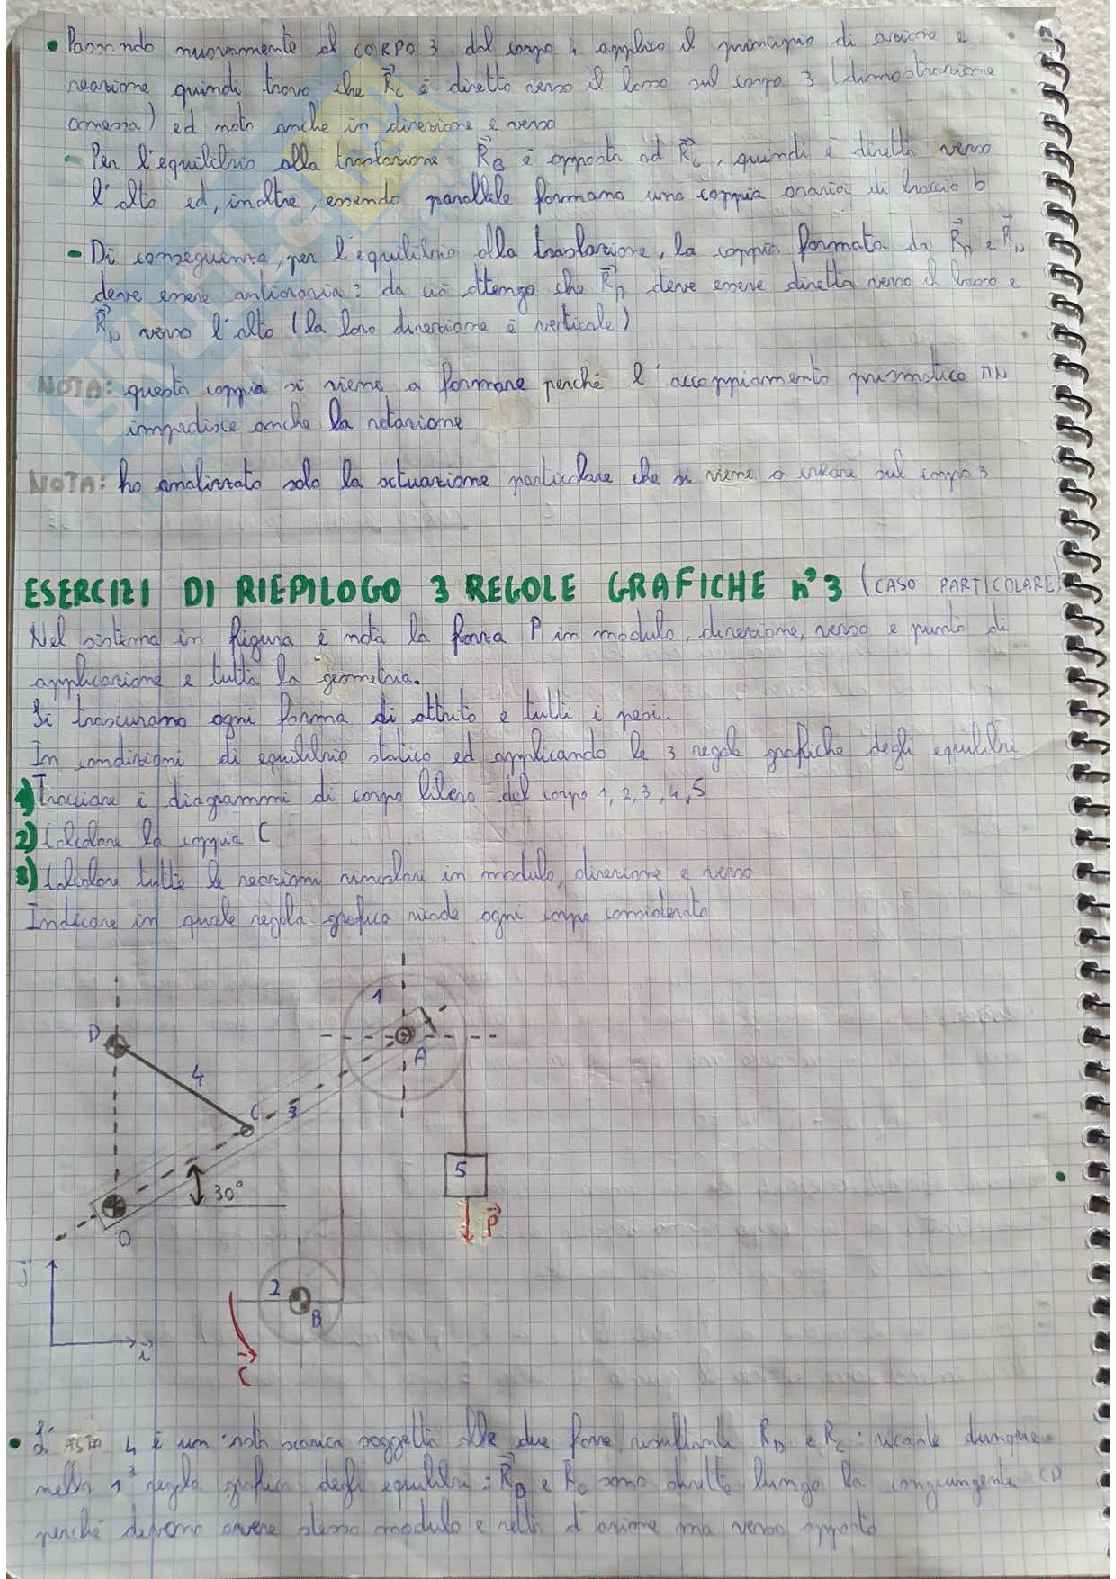 • Passando nuovamente al CORPO 3 dal corpo 4 applico il principio di azione e
reazione quindi trovo che R⃗c è diretto verso il basso sul corpo 3 (dimostrazione
omessa) ed noto anche in direzione e verso
- Per l'equilibrio alla traslazione R⃗B è opposta ad R⃗c, quindi è diretta verso
l'alto ed, inoltre, essendo parallele formano una coppia oraria di braccio b
- Di conseguenza, per l'equilibrio alla traslazione, la coppia formata da R⃗M e R⃗N
deve essere antioraria: da ciò ottengo che R⃗M deve essere diretta verso il basso e
R⃗N verso l'alto (la loro direzione è verticale)
NOTA: questa coppia si viene a formare perché l'accoppiamento prismatico MN
impedisce anche la rotazione
NOTA: ho analizzato solo la situazione particolare che si viene a creare sul corpo 3
ESERCIZI DI RIEPILOGO 3 REGOLE GRAFICHE n°3 (CASO PARTICOLARE)
Nel sistema in figura è nota la forza P in modulo, direzione, verso e punto di
applicazione e tutta la geometria.
Si trascurano ogni forma di attrito e tutti i pesi.
In condizioni di equilibrio statico ed applicando le 3 regole grafiche degli equilibri
1) Tracciare i diagrammi di corpo libero del corpo 1, 2, 3, 4, 5
2) Calcolare la coppia C
3) Calcolare tutte le reazioni vincolari in modulo, direzione e verso
Indicare in quale regola grafica ricade ogni corpo considerato
1
D
A
4
C
3
5
30°
P⃗
O
j⃗
2
B
i⃗
C⃗
• L'ASTA 4 è un'asta scarica soggetta alle due forze risultanti RD e Rc: ricade dunque
nella 1ª regola grafica degli equilibri: R⃗D e Rc sono dirette lungo la congiungente CD
perché devono avere stesso modulo e retta d'azione ma verso opposto